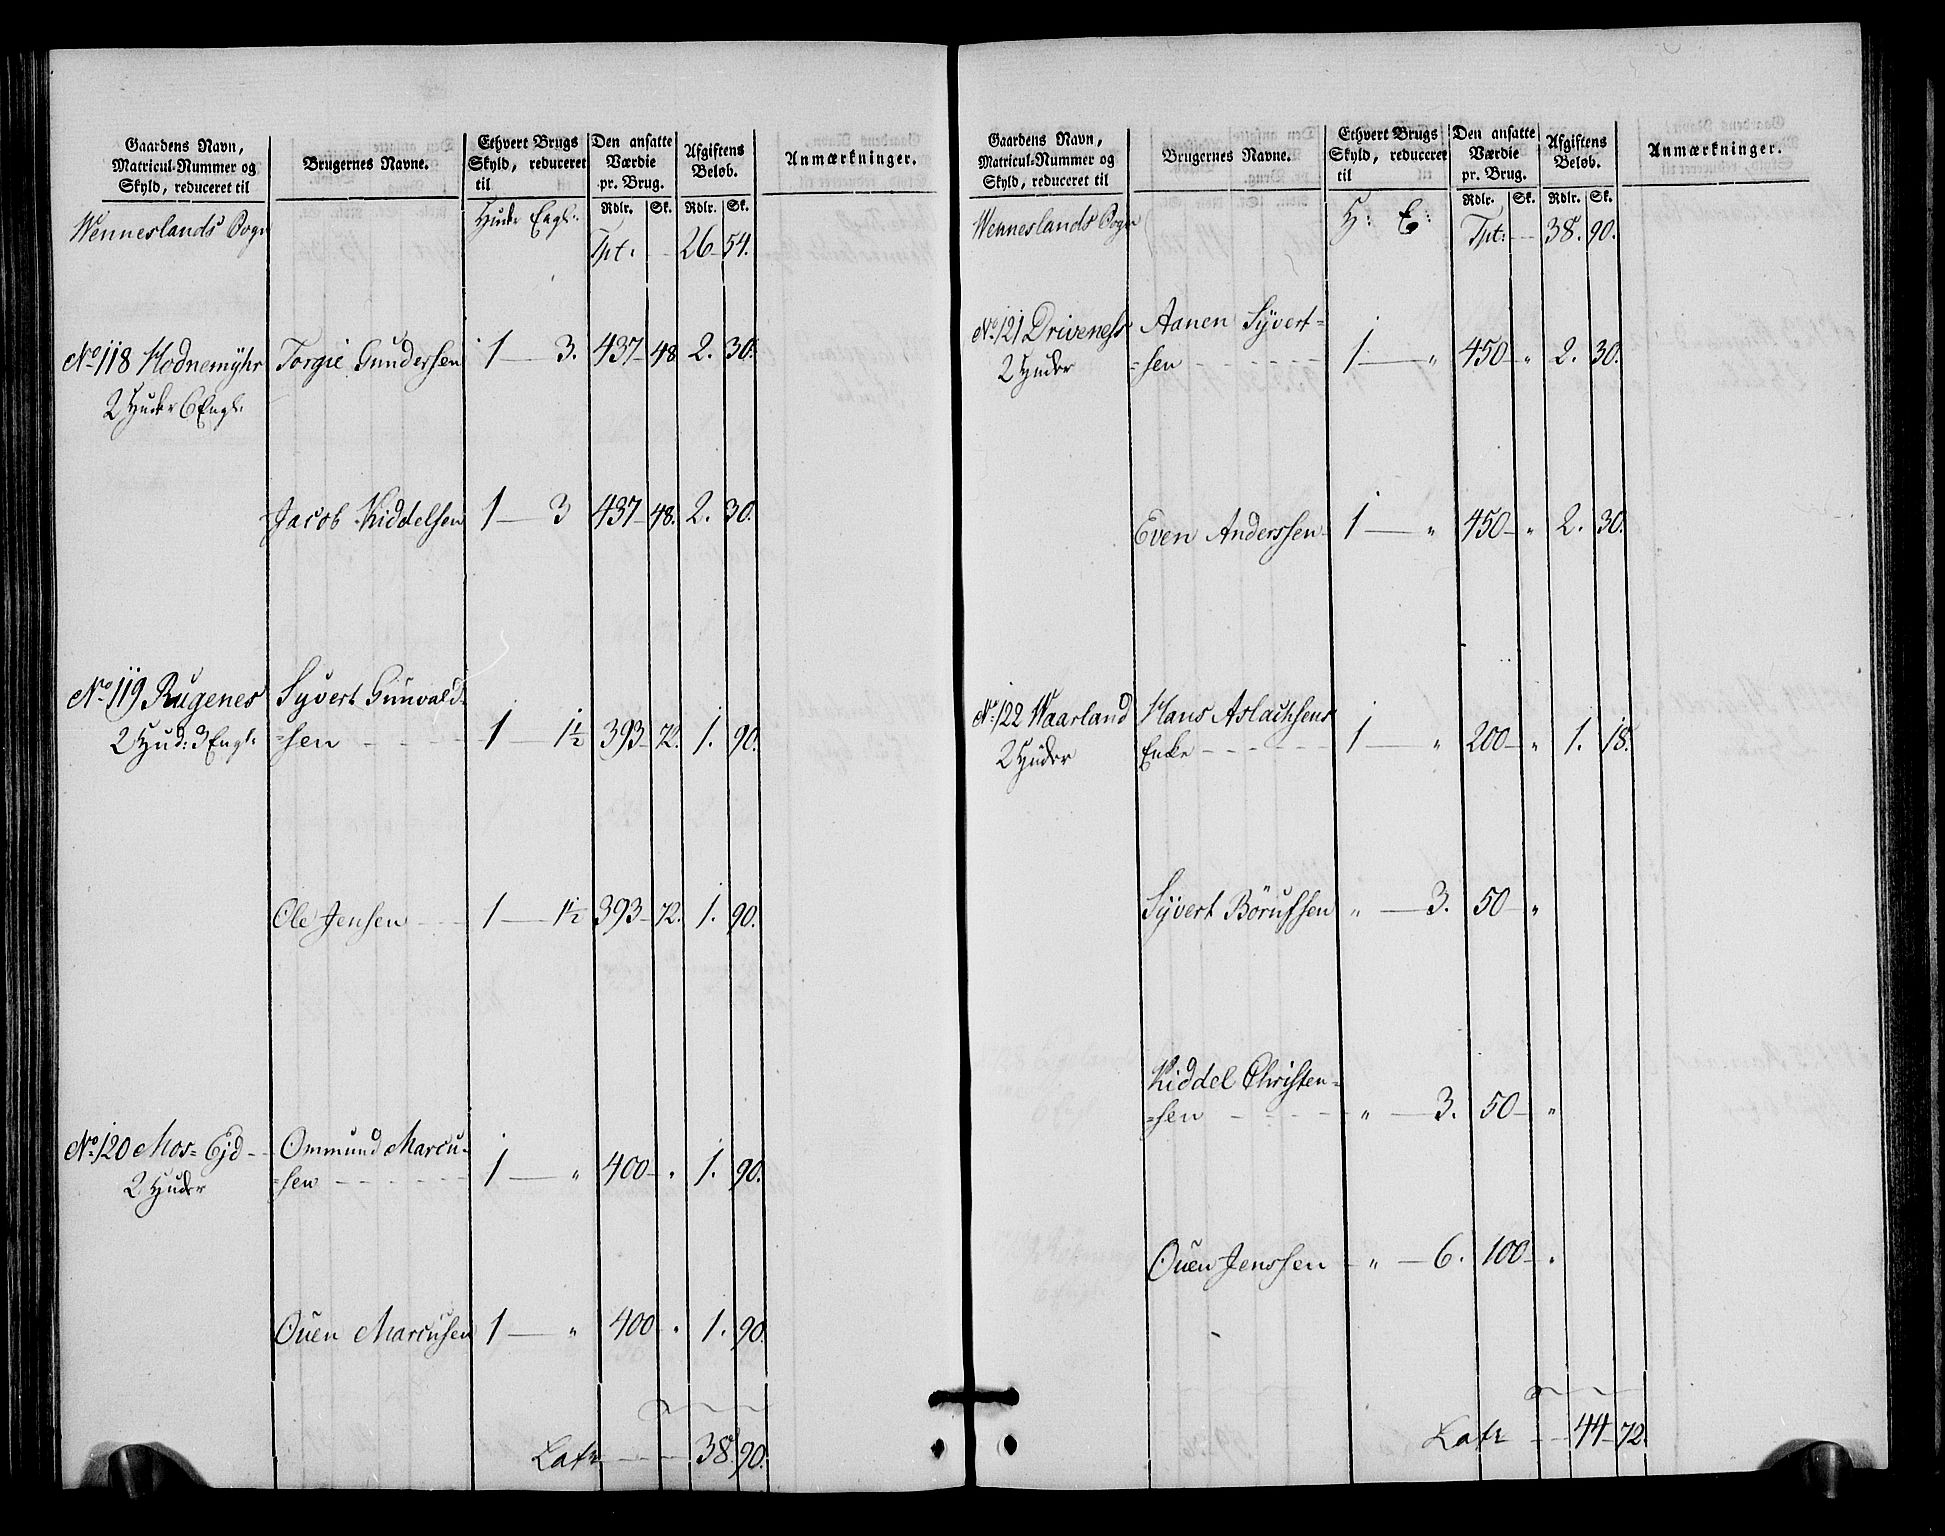 Gaardens Navn,
Matricul-Nummer og
Skyld, reduceret til
Brugernes Navne.
Ethvert Brugs
Skyld, reduceret
til
Den ansatte
Værdie
pr. Brug.
Rdlr. Sk.
Afgiftens
Beløb.
Rdlr. Sk.
Anmærkninger.
Wenneslands Sogn Huder Engl:
Tpt: 26 54.
No 118 Hodnemÿhr Torgie Gundersen 1 — 3. 437 48 2. 30.
2 Huder 6 Engl:
Jacob Kiddelsen 1 — 3 437 48. 2. 30.
No 119 Rugenes Syvert Gunvald-
2 Hud: 3 Engl: =sen 1 — 1½ 393 72. 1. 90.
Ole Jensen 1 — 1½ 393 72. 1. 90.
No 120 Mos=Ejd Ommund Marcu-
2 Huder =sen 1 — " 400 " 1. 90.
Ouen Marcusen 1 — " 400 " 1. 90.
Latr 38. 90.
Gaardens Navn,
Matricul-Nummer og
Skyld, reduceret til
Brugernes Navne.
Ethvert Brugs
Skyld, reduceret
til
Den ansatte
Værdie
pr. Brug.
Rdlr. Sk.
Afgiftens
Beløb.
Rdlr. Sk.
Anmærkninger.
Wenneslands Sogn H: E: Tpt: 38. 90.
No 121 Driveness Aanen Sÿvert=
2 Huder =sen 1 — " 450 " 2. 30.
Even Anderssen 1 — " 450 " 2. 30.
No 122 Waarland Hans Aslachsens
2 Huder Enke 1 — " 200 " 1. 18.
Sÿvert Börufsen " — 3. 50 "
Kiddel Christen=
=sen " — 3. 50 "
Ouen Jenssen " — 6. 100 "
Latr 44 72.